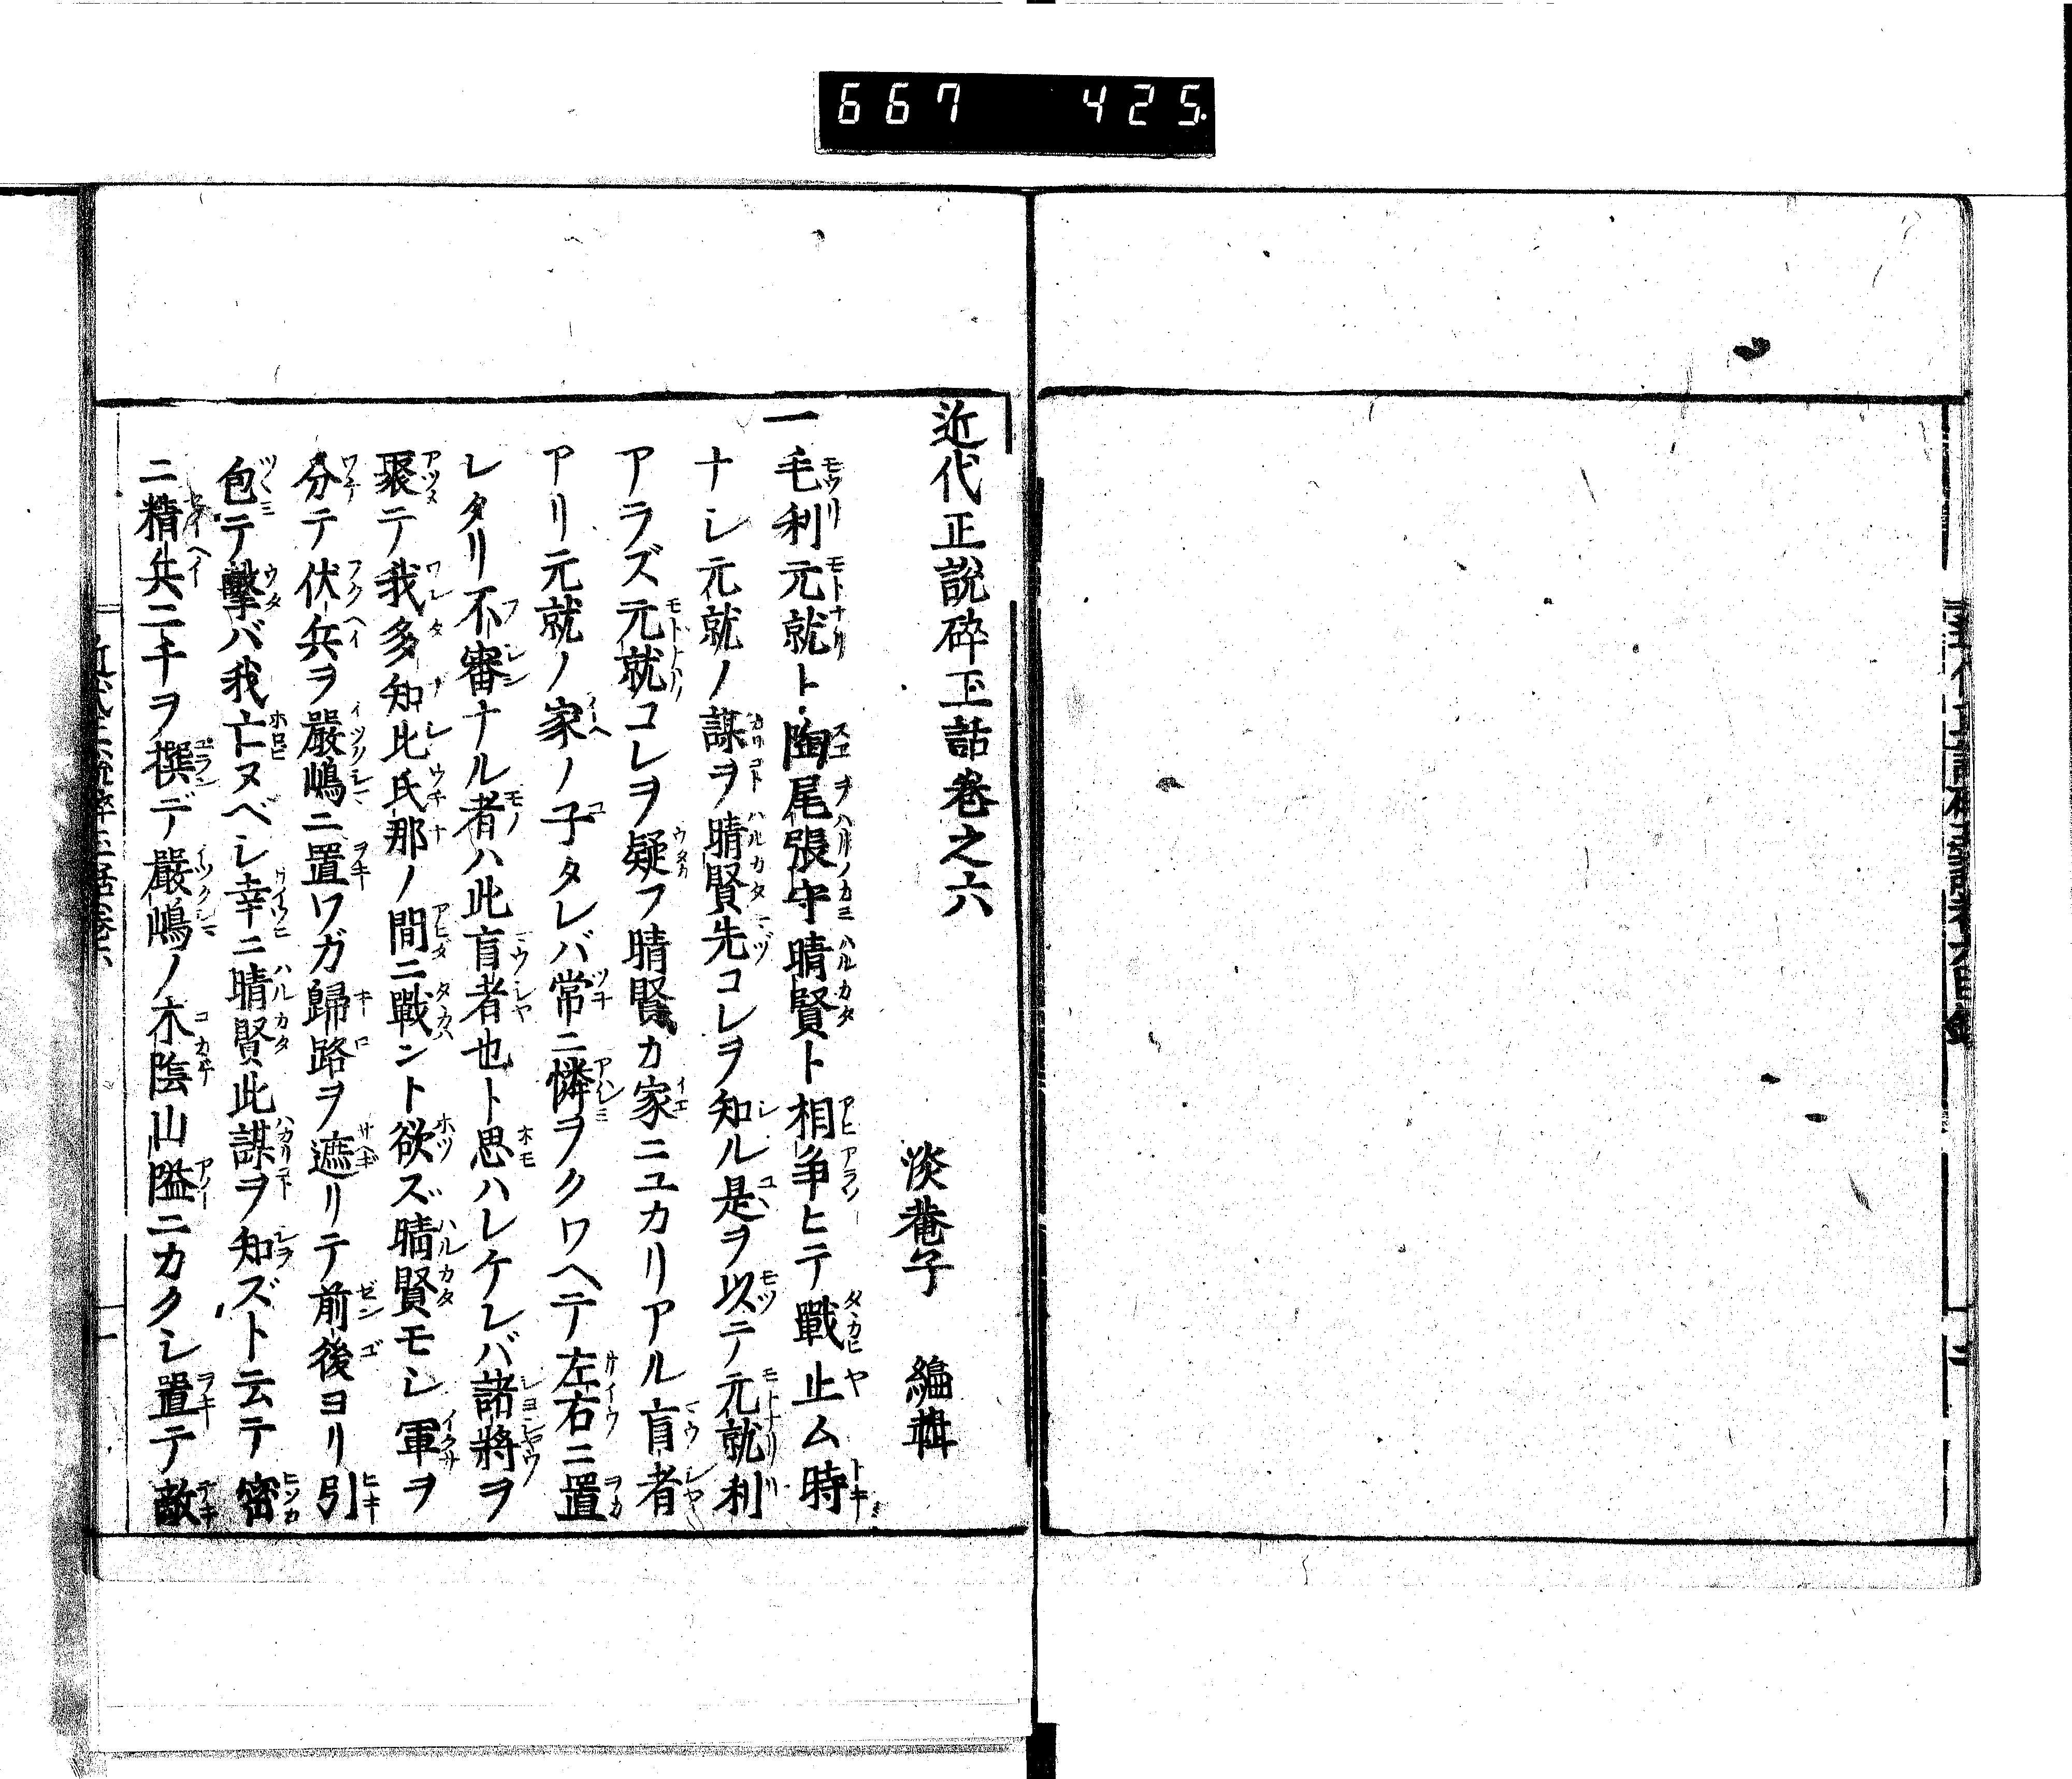 667 425
近代正說碎玉話卷之六
淡菴子 編輯
一毛利元就ト陶尾張守晴賢ト相爭ヒテ戰止ム時
ナシ元就ノ謀ヲ晴賢先コレヲ知ル是ヲ以テ元就利
アラズ元就コレヲ疑フ晴賢カ家ニユカリアル盲者
アリ元就ノ家ノ子タレバ常ニ憐ヲクワヘテ左右ニ置
レタリ不審ナル者ハ此盲者也ト思ハレケレバ諸將ヲ
聚テ我多知比氏那ノ間ニ戰ント欲ズ晴賢モシ軍ヲ
分テ伏兵ヲ嚴嶋ニ置ワガ歸路ヲ遮リテ前後ヨリ引
包テ擊バ我亡ヌベシ幸ニ晴賢此謀ヲ知ズト云テ密
ニ精兵二千ヲ撰デ嚴嶋ノ木陰山隘ニカクシ置テ敵